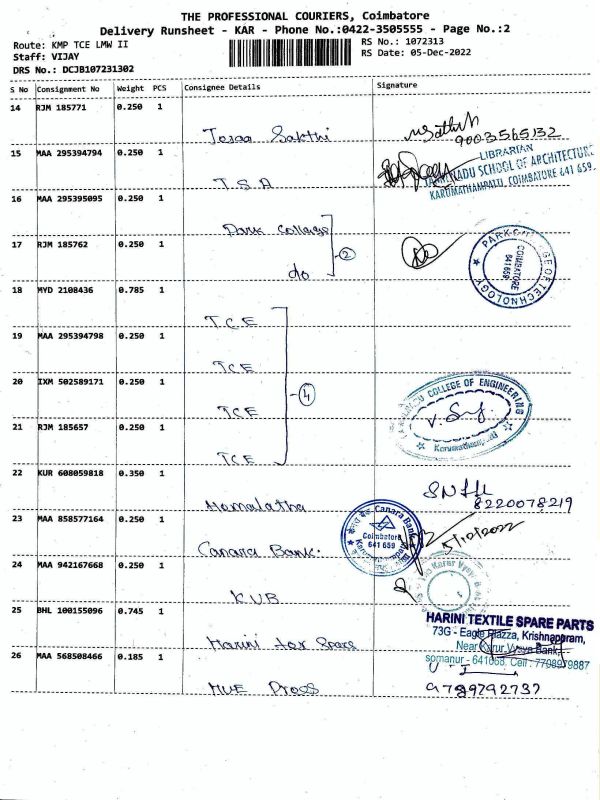 THE PROFESSIONAL COURIERS, Coimbatore
Delivery Runsheet - KAR - Phone No.:0422-3505555 - Page No.:2
Route: KMP TCE LMW II
RS No.: 1072313
Staff: VIJAY
RS Date: 05-Dec-2022
DRS No.: DCJB107231302
S No Consignment No Weight PCS Consignee Details Signature
14 RJM 185771 0.250 1
Sakthi
9003565132
15 MAA 295394794 0.250 1
T.S.A
LIBRARIAN
TAMILNADU SCHOOL OF ARCHITECTURE
KARUMATHAMPATTI, COIMBATORE 641 659.
16 MAA 295395095 0.250 1
Park College
17 RJM 185762 0.250 1
do
2
COIMBATORE
641 659
18 MYD 2108436 0.785 1
TCE
19 MAA 295394798 0.250 1
TCE
4
20 IXM 502589171 0.250 1
TCE
COLLEGE OF ENGINEERING
21 RJM 185657 0.250 1
TCE
22 KUR 608059818 0.350 1
Hemalatha
8220078219
23 MAA 858577164 0.250 1
Canara Bank.
Canara Bank
Coimbatore
641 659
5/12/2022
24 MAA 942167668 0.250 1
KVB
Karur Vysya Bank
25 BHL 100155096 0.745 1
Harini tex Spare
HARINI TEXTILE SPARE PARTS
73G - Eagle Plazza, Krishnapuram,
Near Karur Vysya Bank,
somanur - 641668. Cell : 7708979887
26 MAA 568508466 0.185 1
Press
9789792737